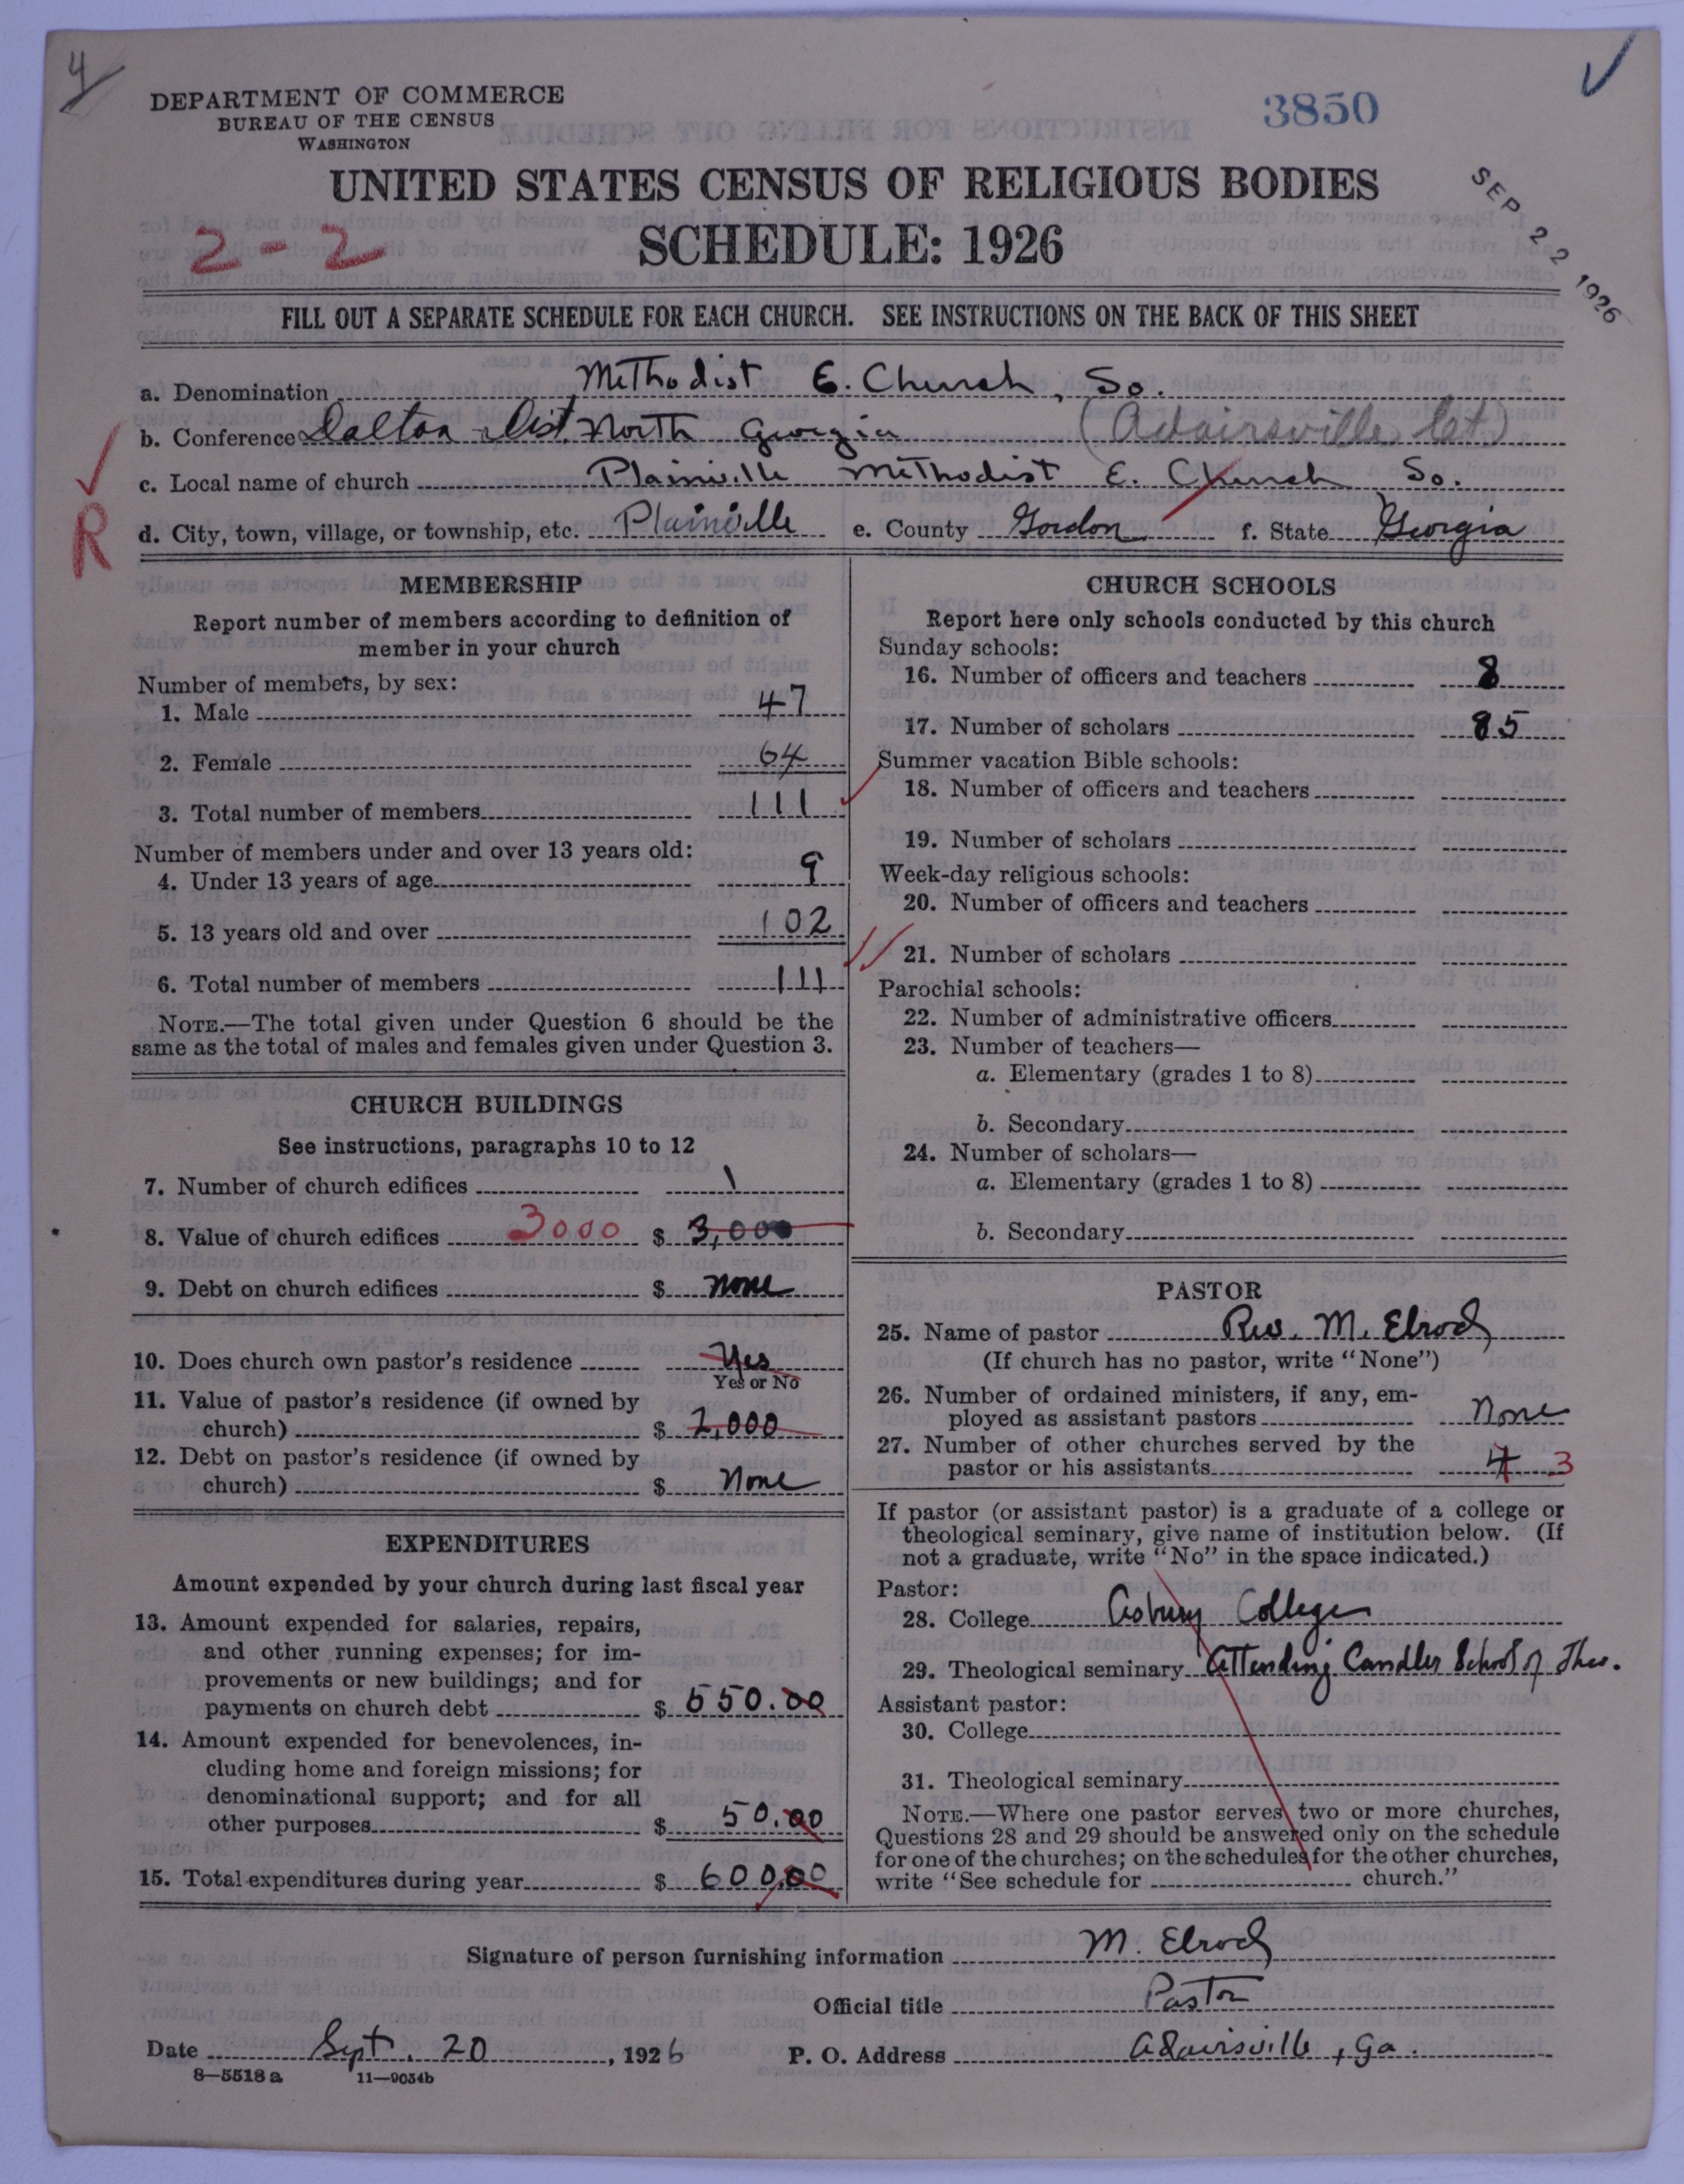 4
DEPARTMENT OF COMMERCE
BUREAU OF THE CENSUS
WASHINGTON
3850
SEP 22 1926
UNITED STATES CENSUS OF RELIGIOUS BODIES
2-2
SCHEDULE: 1926
FILL OUT A SEPARATE SCHEDULE FOR EACH CHURCH. SEE INSTRUCTIONS ON THE BACK OF THIS SHEET
a. Denomination Methodist E. Church, So.
b. Conference Dalton Dist. North Georgia (Adairsville
c. Local name of church Plainville Methodist E. Church So.
R
d. City, town, village, or township, etc. Plainville e. County Gordon f. State Georgia
MEMBERSHIP
Report number of members according to definition of
member in your church
Number of members, by sex:
1. Male 47
2. Female 64
3. Total number of members 111
Number of members under and over 13 years old:
4. Under 13 years of age 9
5. 13 years old and over 102
6. Total number of members 111
NOTE.—The total given under Question 6 should be the
same as the total of males and females given under Question 3.
CHURCH BUILDINGS
See instructions, paragraphs 10 to 12
7. Number of church edifices 1
8. Value of church edifices 3000 $ 3,000
9. Debt on church edifices $ none
10. Does church own pastor's residence Yes
Yes or No
11. Value of pastor's residence (if owned by
church) $ 2,000
12. Debt on pastor's residence (if owned by
church) $ None
EXPENDITURES
Amount expended by your church during last fiscal year
13. Amount expended for salaries, repairs,
and other running expenses; for im-
provements or new buildings; and for
payments on church debt $ 550.00
14. Amount expended for benevolences, in-
cluding home and foreign missions; for
denominational support; and for all
other purposes $ 50.00
15. Total expenditures during year $ 600.00
CHURCH SCHOOLS
Report here only schools conducted by this church
Sunday schools:
16. Number of officers and teachers 8
17. Number of scholars 85
Summer vacation Bible schools:
18. Number of officers and teachers
19. Number of scholars
Week-day religious schools:
20. Number of officers and teachers
21. Number of scholars
Parochial schools:
22. Number of administrative officers
23. Number of teachers—
a. Elementary (grades 1 to 8)
b. Secondary
24. Number of scholars—
a. Elementary (grades 1 to 8)
b. Secondary
PASTOR
25. Name of pastor Rev. M. Elrod
(If church has no pastor, write "None")
26. Number of ordained ministers, if any, em-
ployed as assistant pastors None
27. Number of other churches served by the
pastor or his assistants 4 3
If pastor (or assistant pastor) is a graduate of a college or
theological seminary, give name of institution below. (If
not a graduate, write "No" in the space indicated.)
Pastor:
28. College Asbury College
29. Theological seminary Attending Candler School of Theo.
Assistant pastor:
30. College
31. Theological seminary
NOTE.—Where one pastor serves two or more churches,
Questions 28 and 29 should be answered only on the schedule
for one of the churches; on the schedules for the other churches,
write "See schedule for church."
Signature of person furnishing information M. Elrod
Official title Pastor
Date Sept. 20, 1926 P. O. Address Adairsville, Ga.
8—5518 a 11—9034b